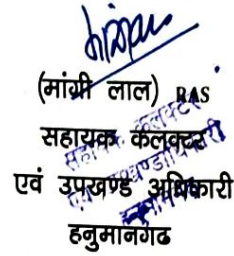 (मांगी लाल) RAS
सहायक कलक्टर
एवं उपखण्ड अधिकारी
हनुमानगढ